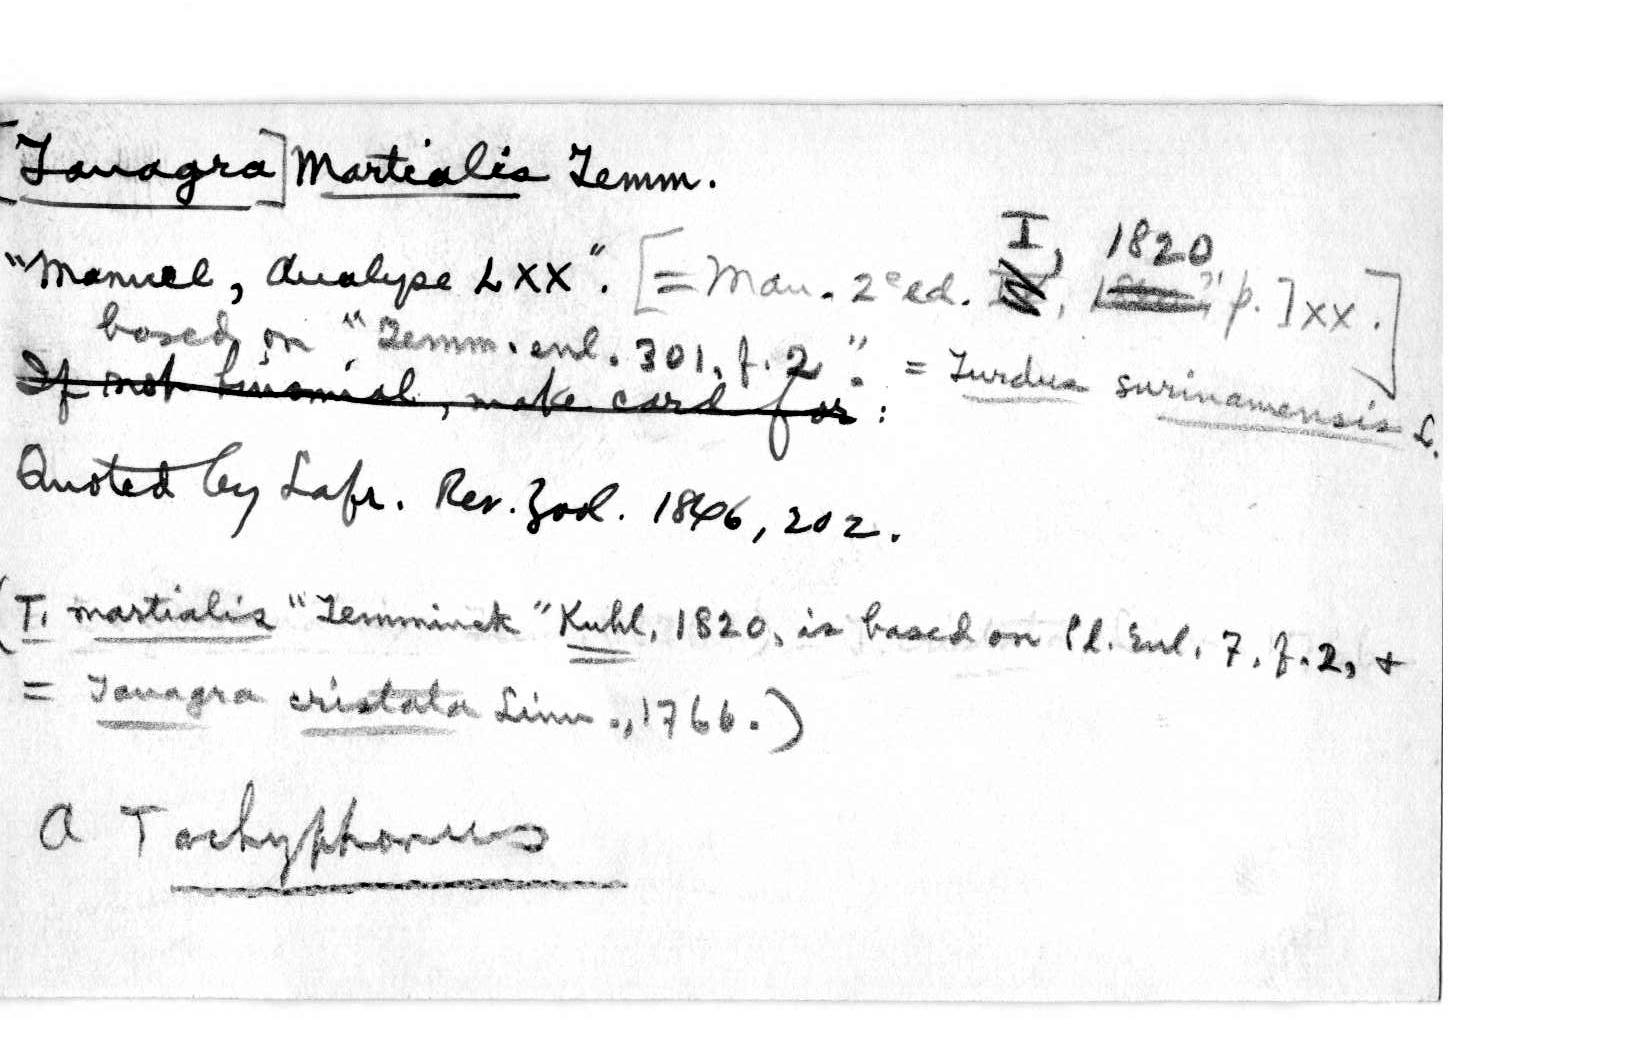 [Tanagra] Martialis Temm.
I, 1820
"Manuel, Analyse LXX". [= Man. 2e ed. , p. lxx.]
based on "Temm. enl. 301, f. 2". = Turdus surinamensis L.
If not binomial, make card for:
Quoted by Lafr. Rev. Zool. 1846, 202.
(T. martialis "Temminck" Kuhl, 1820, is based on Pl. Enl. 7, f. 2, +
= Tanagra cristata Linn., 1766.)
a Tachyphonus